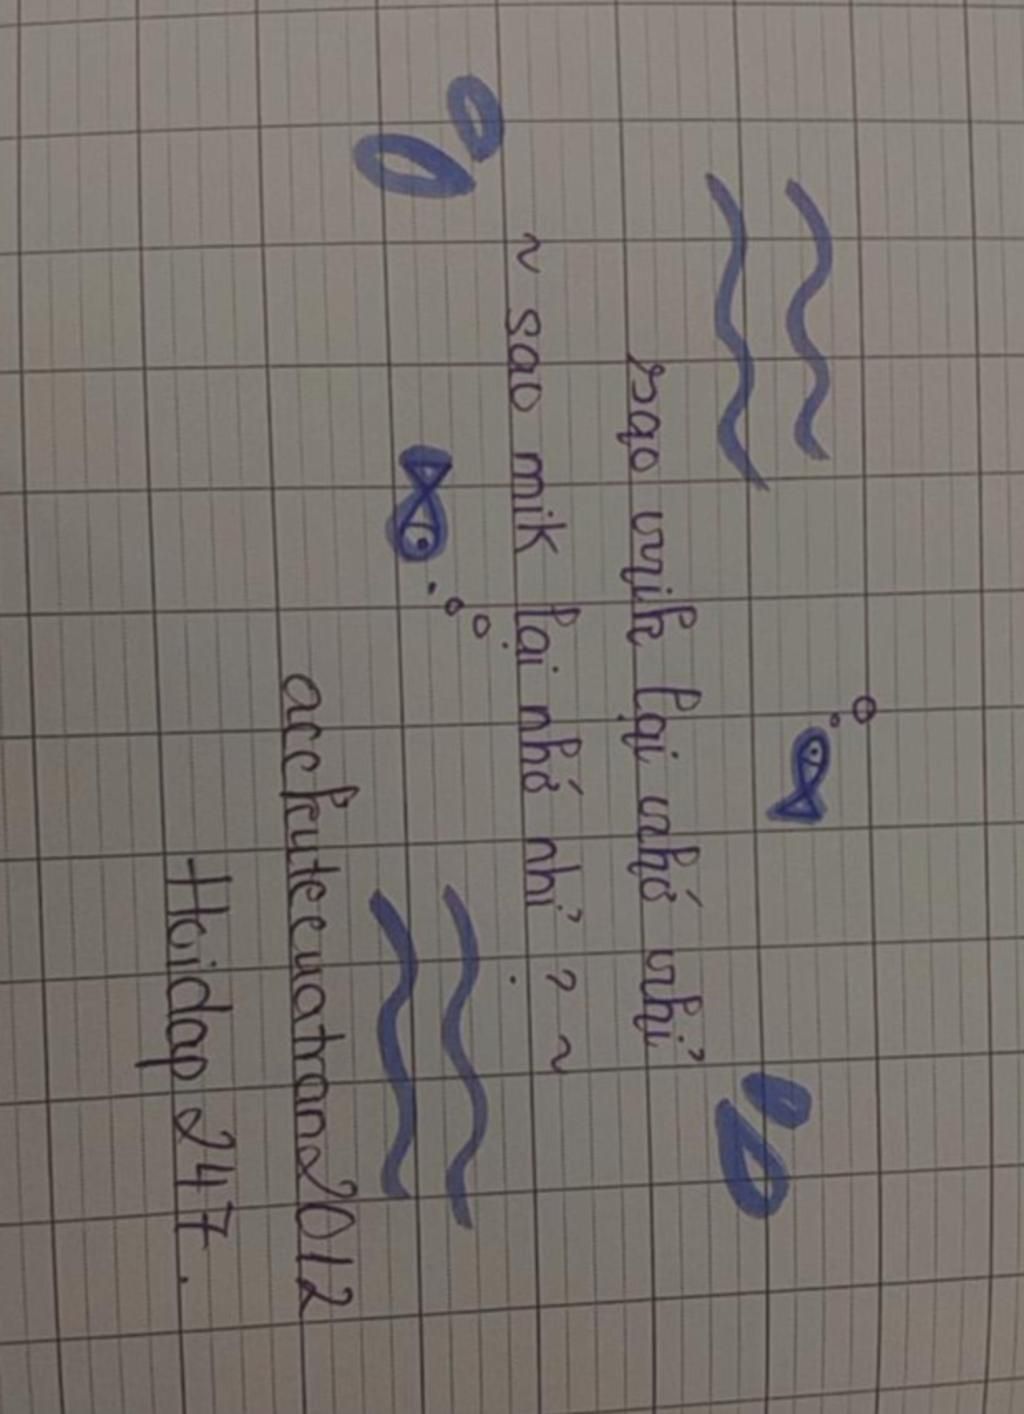 sao mik lại nhớ nhỉ
~ sao mik lại nhớ nhỉ ? ~
acckuteeuatrann2012
Hoidap247.